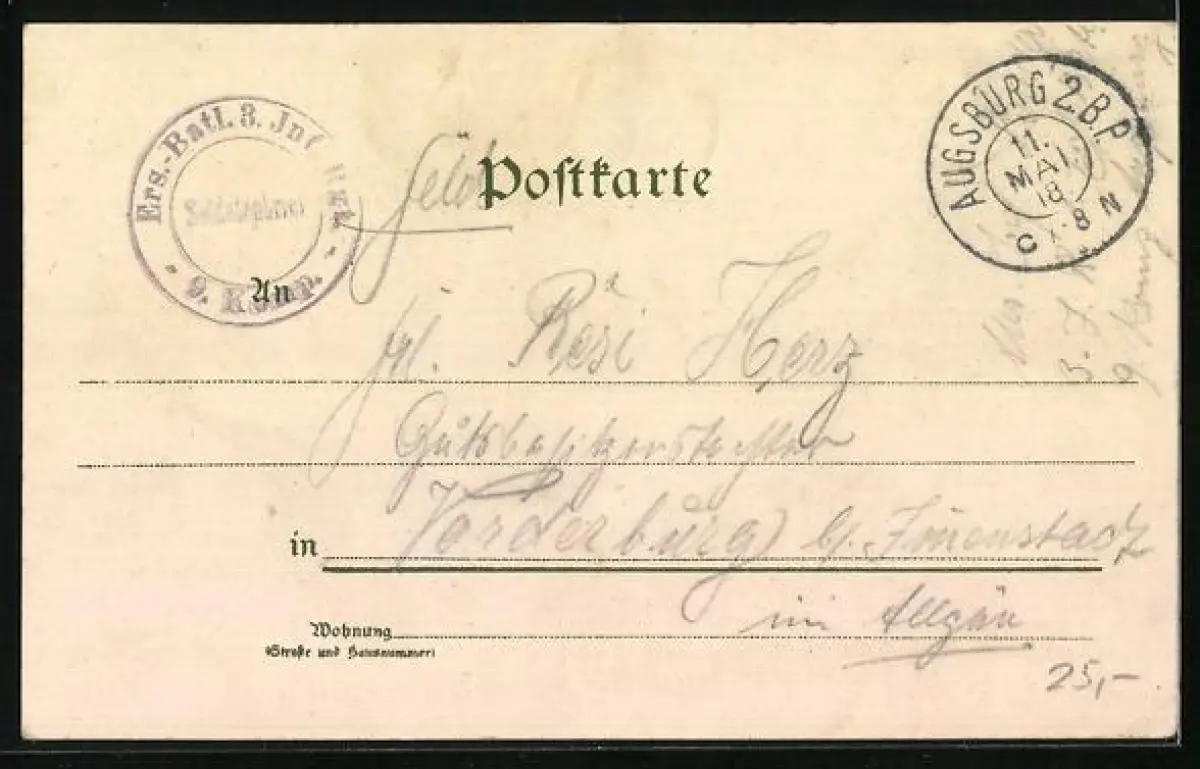 Ers.-Batl. 3. Inf. Regt.
- 9. Komp. -
AUGSBURG 2. B.P.
11.
MAI
18
C 7-8 N
Feld Postkarte
An
Frl. Resi Herz
Gutsbesitzerstochter
in Vorderburg b. Immenstadt
im Allgäu
Wohnung
(Straße und Hausnummer)
25,-